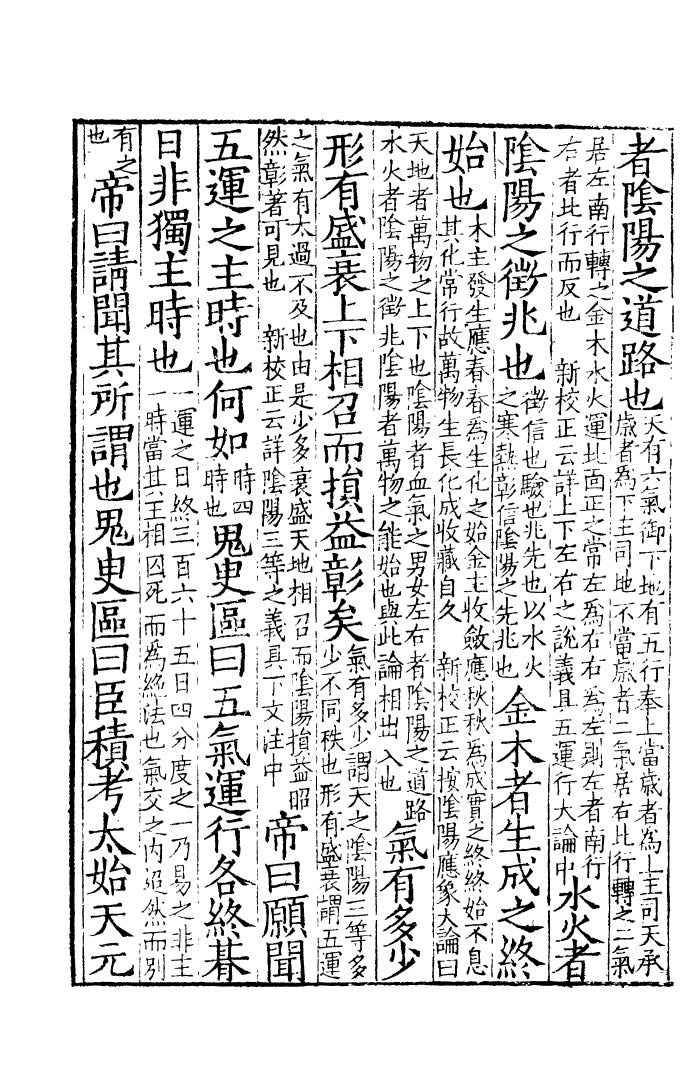 者陰陽之道路也天有六氣御下地有五行奉上當歲者為上主司天承
歲者為下主司地不當歲者二氣居右北行轉之二氣
居左南行轉之金木水火運北面正之常左為右右為左則左者南行
右者北行而反也　新校正云詳上下左右之說義具五運行大論中水火者
陰陽之徵兆也徵信也驗也兆先也以水火
之寒熱彰信陰陽之先兆也金木者生成之終
始也木主發生應春春為生化之始金主收斂應秋秋為成實之終終始不息
其化常行故萬物生長化成收藏自久　新校正云按陰陽應象大論曰
天地者萬物之上下也陰陽者血氣之男女左右者陰陽之道路
水火者陰陽之徵兆陰陽者萬物之能始也與此論相出入也氣有多少
形有盛衰上下相召而損益彰矣氣有多少謂天之陰陽三等多
少不同秩也形有盛衰謂五運
之氣有太過不及也由是少多衰盛天地相召而陰陽損益昭
然彰著可見也　新校正云詳陰陽三等之義具下文注中帝曰願聞
五運之主時也何如時四
時也鬼臾區曰五氣運行各終朞
日非獨主時也一運之日終三百六十五日四分度之一乃易之非主
時當其王相囚死而為絕法也氣交之內迢然而別
有之
也帝曰請聞其所謂也鬼臾區曰臣積考太始天元